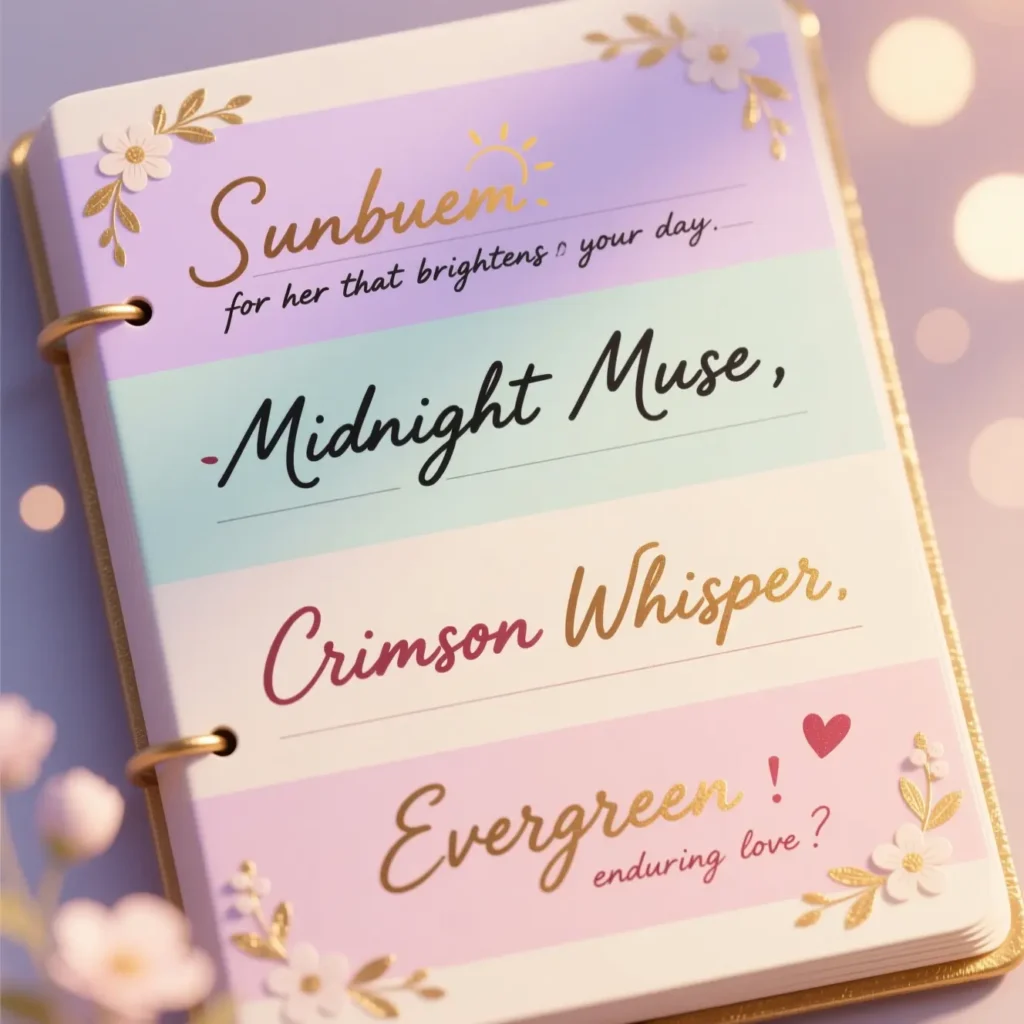 Sunbuem.
for her that brightens your day.
-Midnight Muse,
Crimson Whisper,
Evergreen !
enduring love?